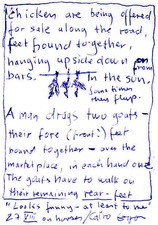 Chicken are being offered
for sale along the road,
feet bound together,
hanging upside down from
bars. In the sun.
some times
they flap.
A man drags two goats -
their fore (front?) feet
bound together - over the
market place, in each hand one
The goats have to walk on
their remaining rear - feet
"Looks funny - at least to me
27 VIII on horses / Cairo